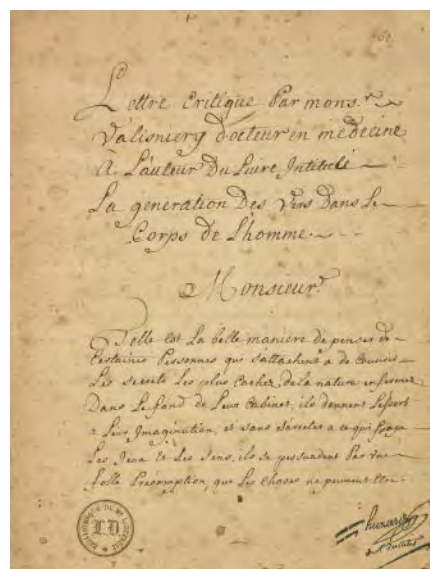 Lettre Critique Par mons.r
Valisniery docteur en medecine
A L'auteur Du Livre Intitulé
La generation Des Vers Dans le
Corps de L'homme.
Monsieur
Telle est La belle maniere de penser de
Certaines Personnes qui s'attachent a de
Les secrets Les plus Cachez de la nature enfermez
Dans Le fond de Leur Cabinet, ils donnent L'essort
a Leur Imagination, et sans s'arreter a ce qui frape
Les Yeux et Les Sens, ils se persuadent Par une
folle Presomption, que Les Choses ne peuvent etre
LD
huzard